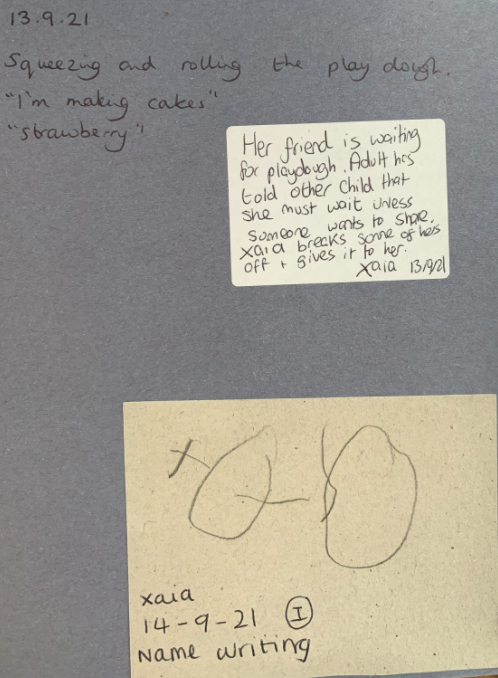 13.9.21
Squeezing and rolling the play dough.
"I'm making cakes"
"strawberry"
Her friend is waiting
for playdough. Adult has
told other child that
she must wait unless
someone wants to share.
Xaia breaks some of hers
off + gives it to her.
Xaia 13/9/21
xaia
14-9-21 I
Name writing